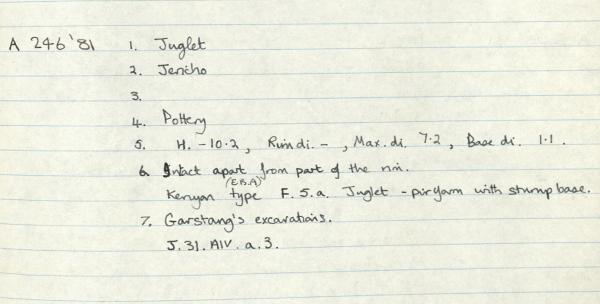 A 246'81 1. Juglet
2. Jericho
3.
4. Pottery
5. H. - 10.2, Rim di. - , Max. di. 7.2, Base di. 1.1.
6. Intact apart from part of the rim.
(E.B.A)
Kenyon type F.5.a. Juglet - piriform with stump base.
7. Garstang's excavations.
J. 31. AIV. a. 3.